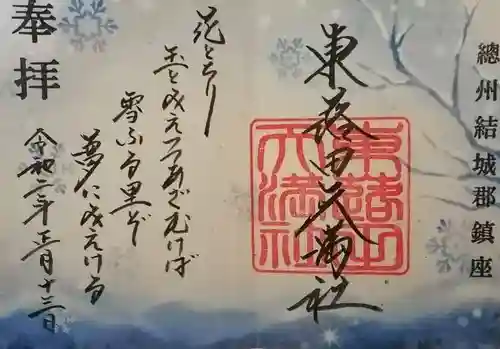 總州結城郡鎮座
東蕗田天満社
東蕗田
天満社
花とちり
玉と見えつつあざむけば
雪ふる里ぞ
夢に見えける
奉拝
令和二年正月十三日